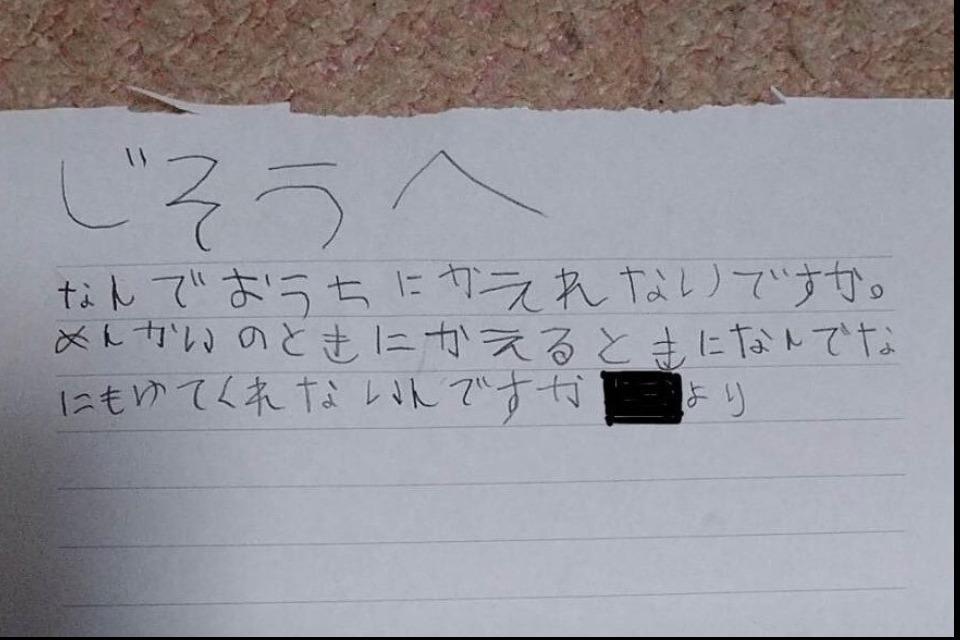 じそうへ
なんでおうちにかえれないですか。
めんかいのときにかえるときになんでな
にもゆてくれないんですか より